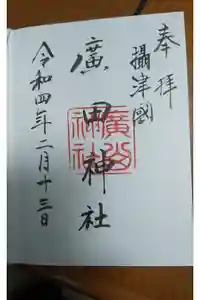 奉拝
攝津國
廣田神社
令和四年二月十三日